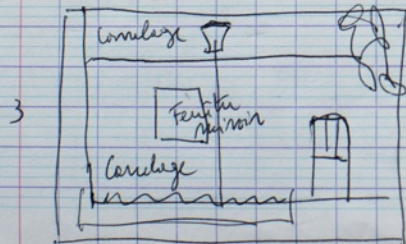 Carrelage
3
Fenêtre
miroir
Carrelage